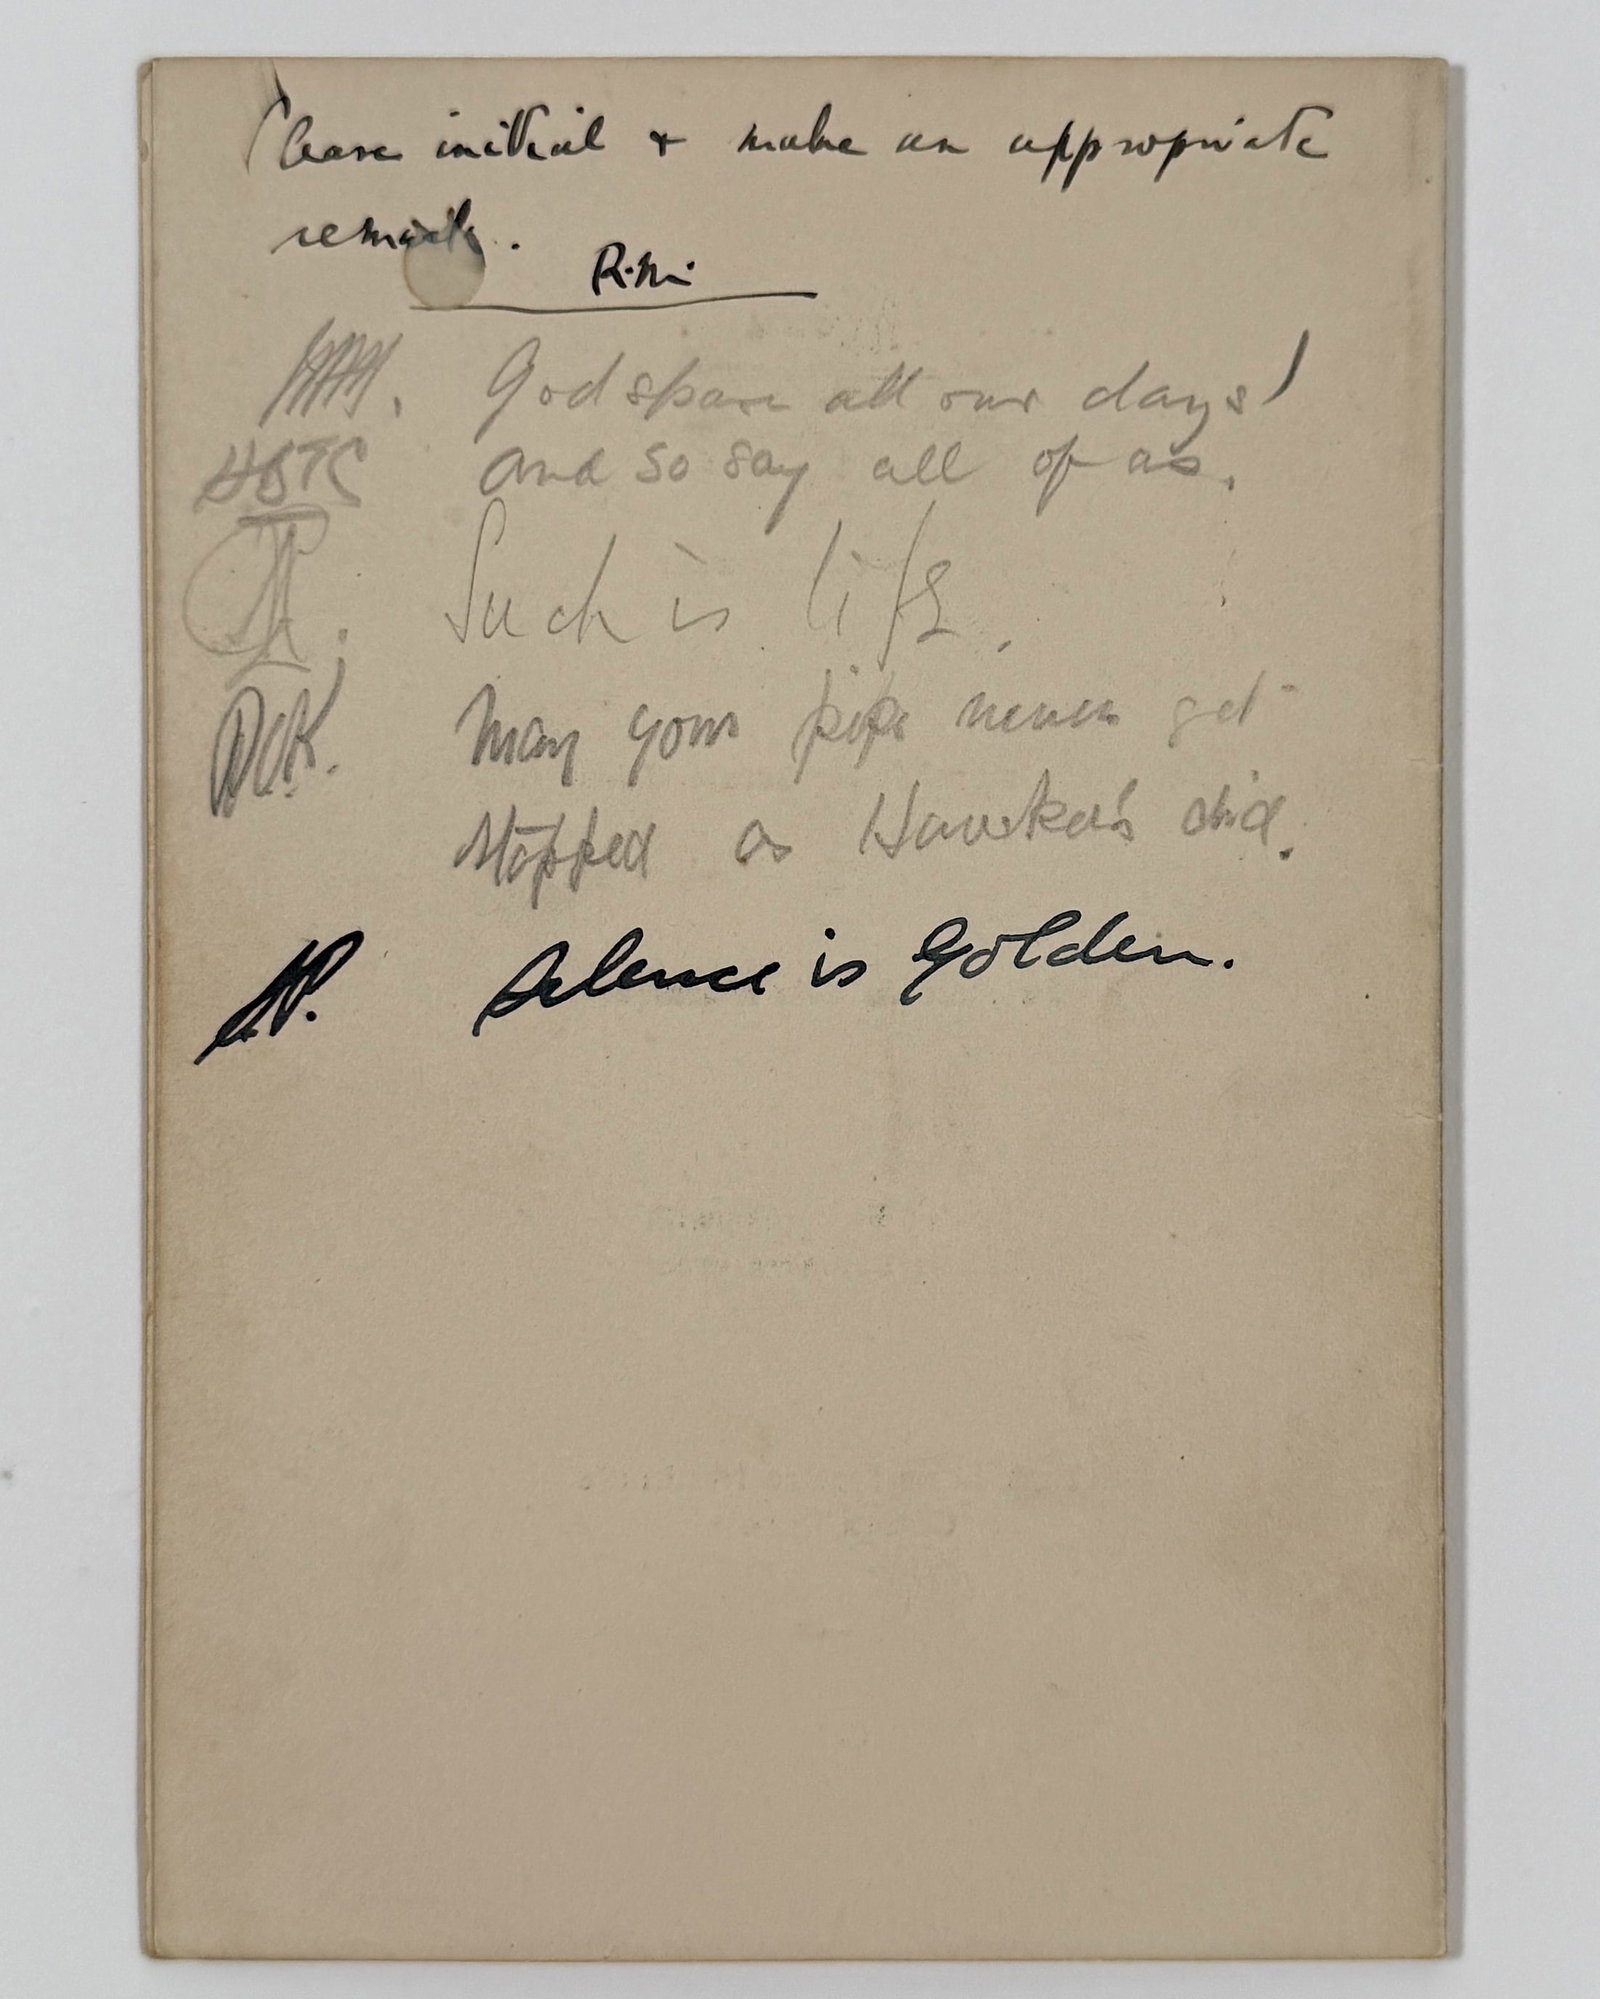 Please initial + make an appropriate
remark.
R.M.
God spare all our days!
HBTC and so say all of us.
Such is life.
DCK. May your pipe never get
stopped as Hawker's did.
Silence is Golden.